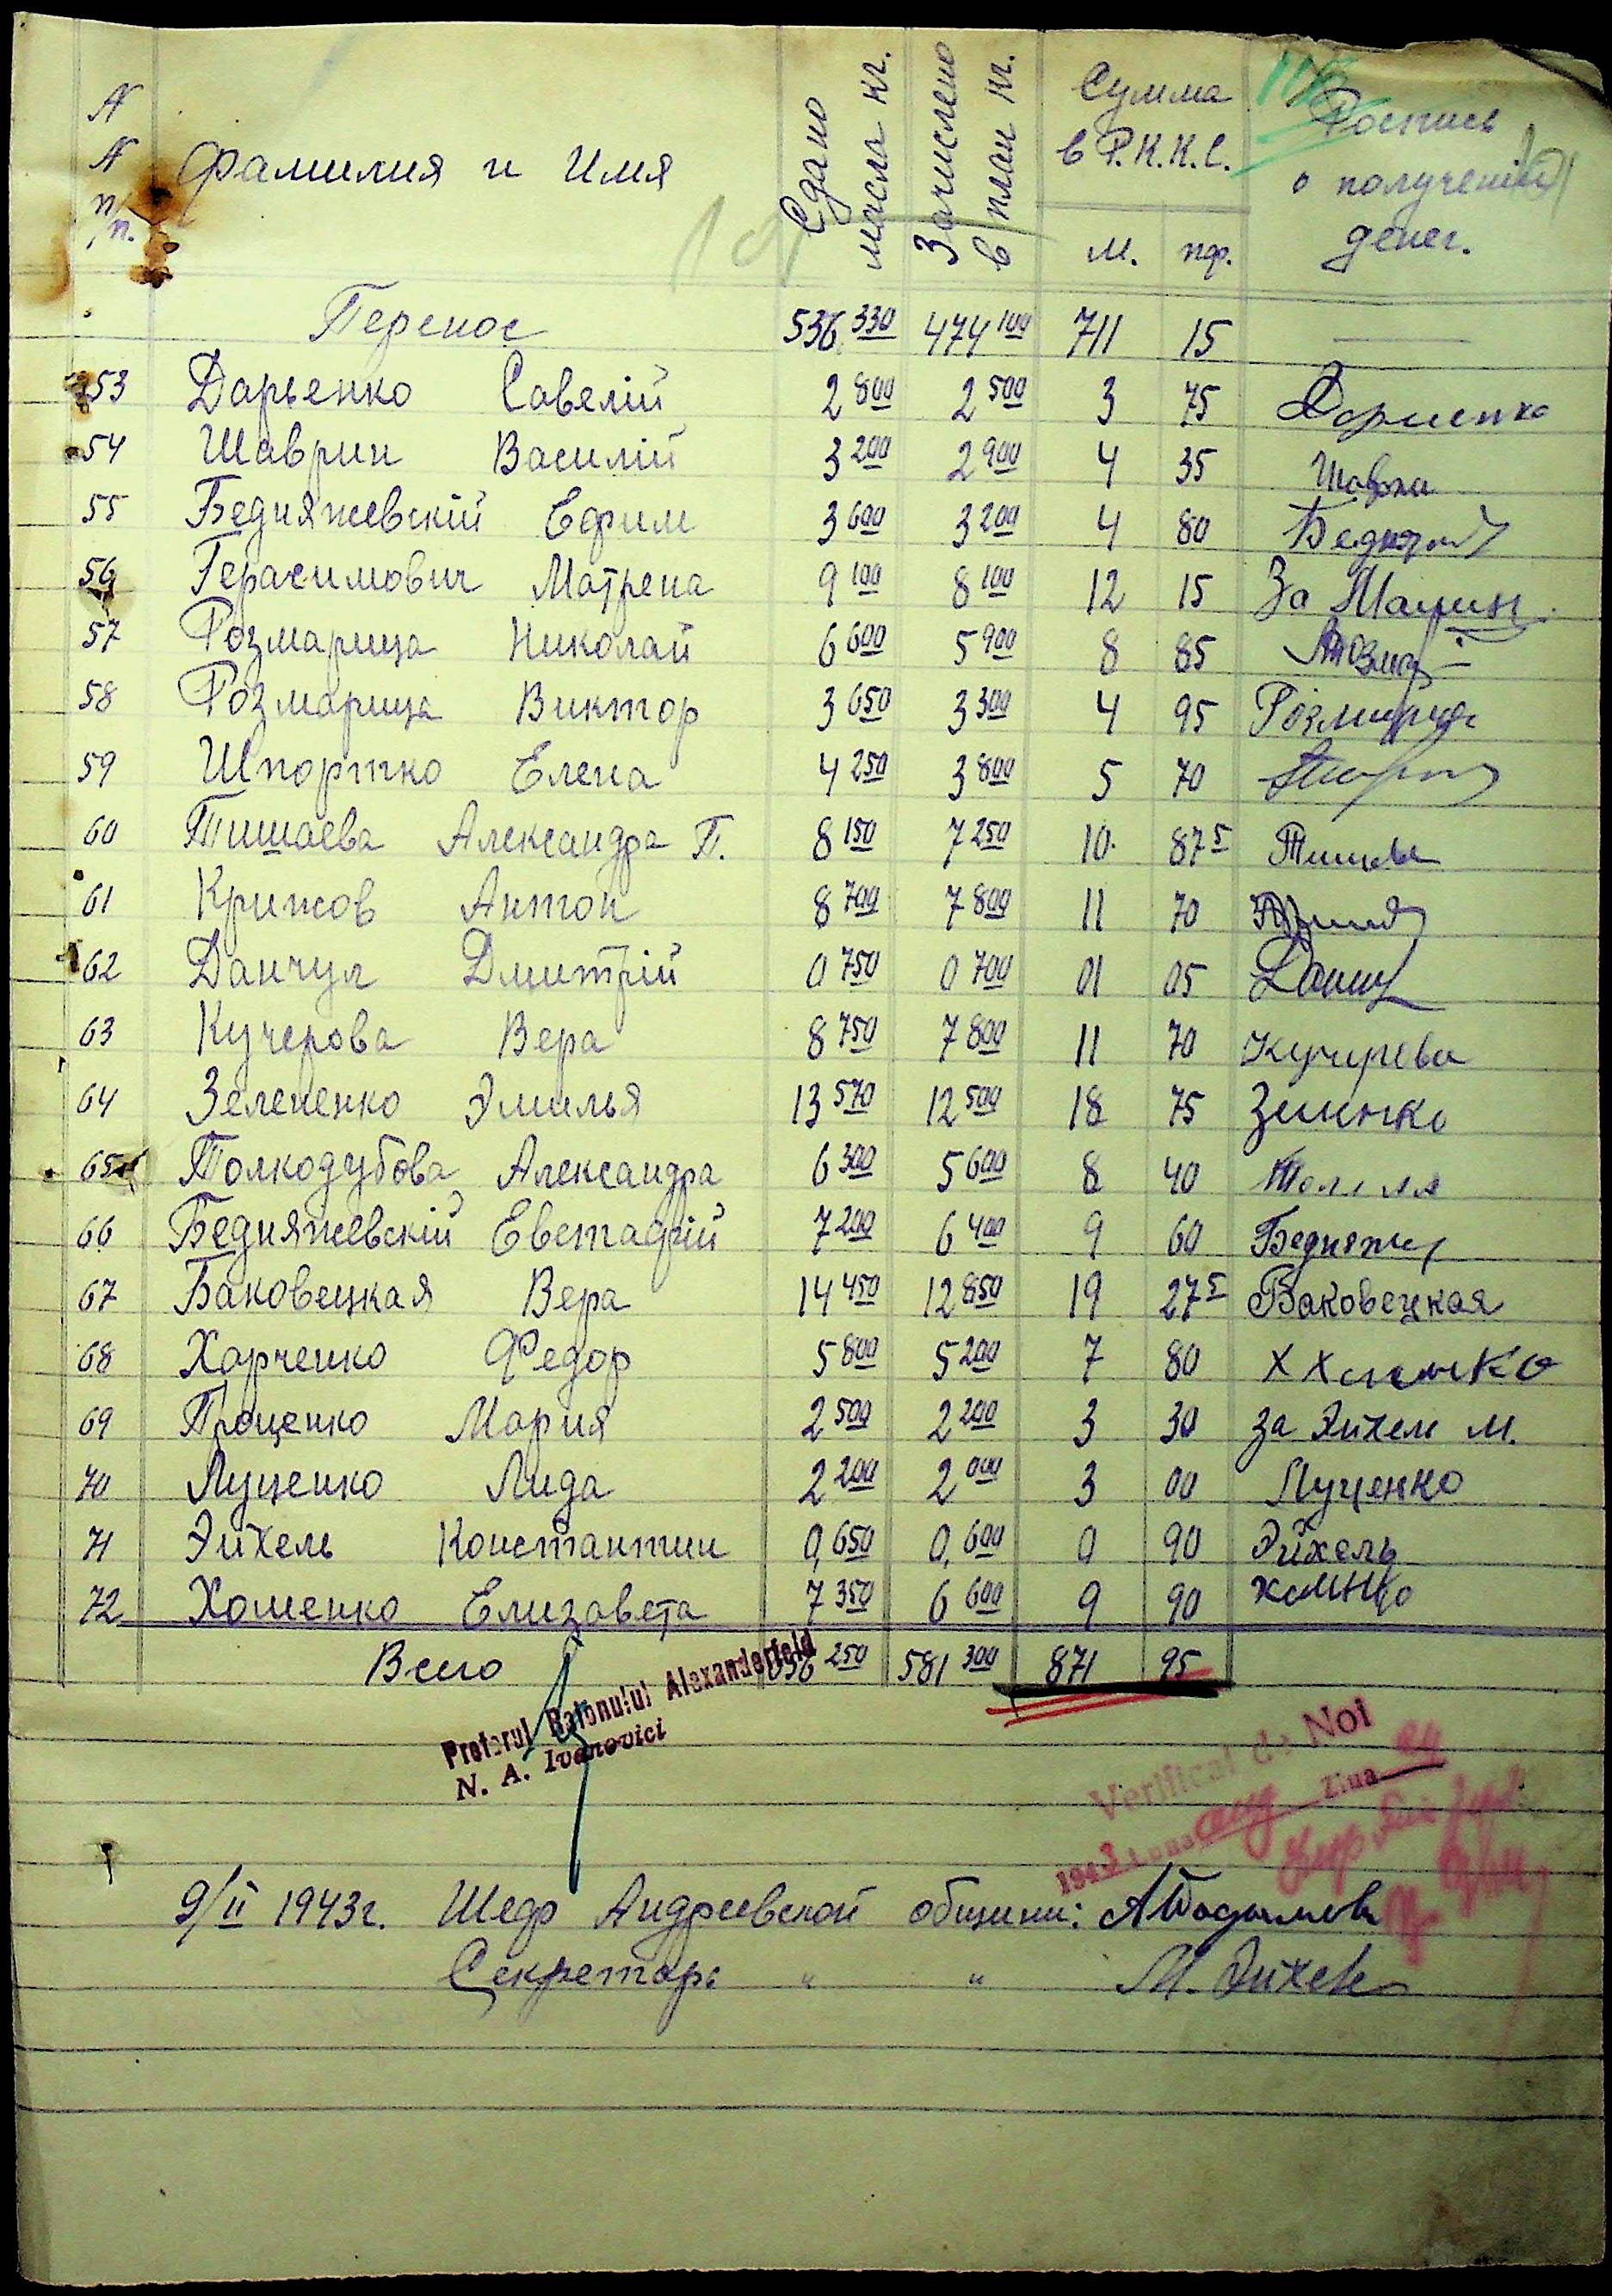 N N п/п. Фамилия и Имя Сдано масла кг. Зачислено в план кг. Сумма в Р.К.К.С. М. пф. Роспись о полученіи денег.
Перенос 536 330 474 100 711 15
53 Дарьенко Савелій 2 800 2 500 3 75
54 Шаврин Василій 3 200 2 900 4 35
55 Бедняжевскій Ефим 3 600 3 200 4 80
56 Герасимович Матрена 9 100 8 100 12 15 За
57 Розмарица Николай 6 600 5 900 8 85
58 Розмарица Виктор 3 650 3 300 4 95
59 Шпортко Елена 4 250 3 800 5 70
60 Тишаева Александра П. 8 150 7 250 10. 87 5
61 Крижов Антон 8 700 7 800 11 70
62 Данчул Дмитрій 0 750 0 700 01 05
63 Кучерова Вера 8 750 7 800 11 70
64 Зелененко Эмилья 13 570 12 500 18 75
65 Толкодубова Александра 6 300 5 600 8 40
66 Бедняжевскій Евстафій 7 200 6 400 9 60 Бедняже
67 Баковецкая Вера 14 450 12 850 19 27 5 Баковецкая
68 Харченко Федор 5 800 5 200 7 80
69 Проценко Мария 2 500 2 200 3 30 за Эйхель М.
70 Луценко Лида 2 200 2 000 3 00 Луценко
71 Эйхель Константин 0,650 0,600 0 90 Эйхель
72 Хоменко Елизавета 7 350 6 600 9 90
Всего 656 250 581 300 871 95
Pretorul Raionului Alexanderfeld
N. A. Ivanovici
Verificat de Noi
194 3 Luna aug Ziua
9/II 1943г. Шеф Андреевской общины:
Секретарь " " М. Эйхель